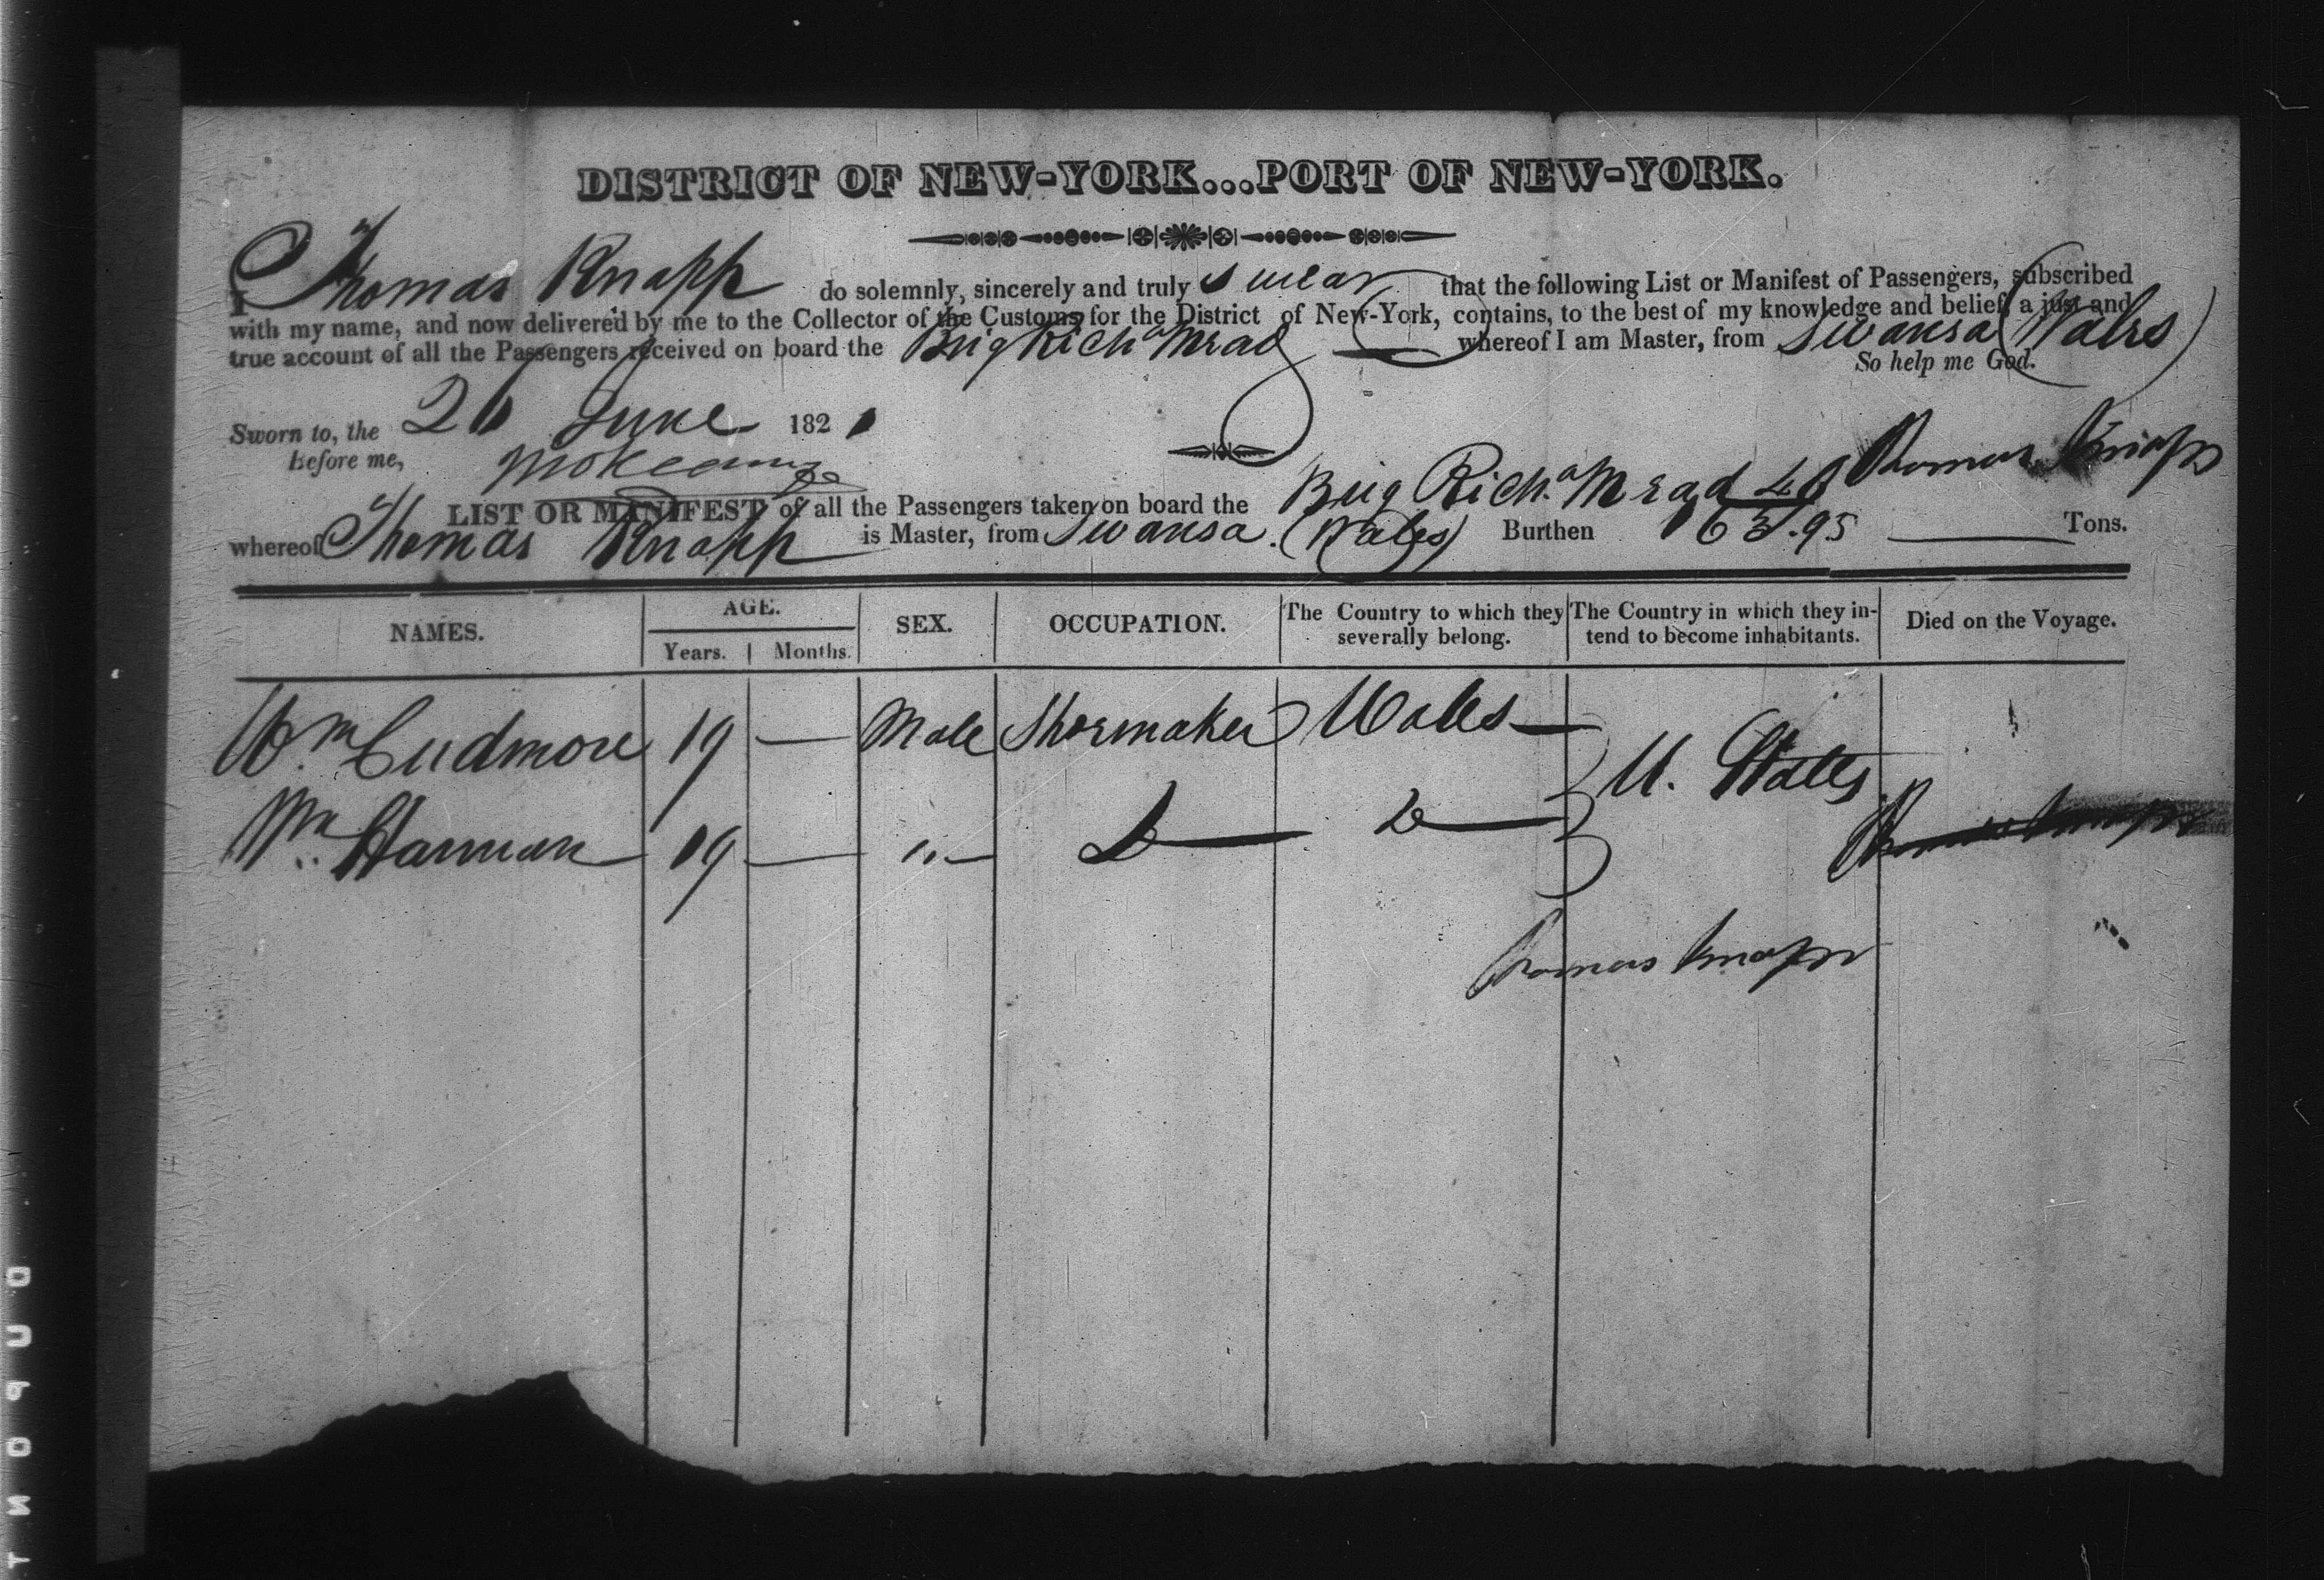 DISTRICT OF NEW-YORK...PORT OF NEW-YORK.
I Thomas Knapp do solemnly, sincerely and truly swear that the following List or Manifest of Passengers, subscribed
with my name, and now delivered by me to the Collector of the Customs for the District of New-York, contains, to the best of my knowledge and belief, a just and
true account of all the Passengers received on board the Brig Richd Mead whereof I am Master, from Swansa (Wales)
So help me God.
Sworn to, the 26 June 1821
Before me,
Thomas Knapp
LIST OR MANIFEST of all the Passengers taken on board the Brig Richd Mead
whereof Thomas Knapp is Master, from Swansa. (Wales) Burthen 163.95 Tons.
NAMES. AGE. SEX. OCCUPATION. The Country to which they severally belong. The Country in which they intend to become inhabitants. Died on the Voyage.
Years. Months.
Wm Cudmore 19 — Male Shoemaker Wales —
U. States
Wm Hannan 19 — " — Do — Do —
Thomas Knapp
Thomas Knapp